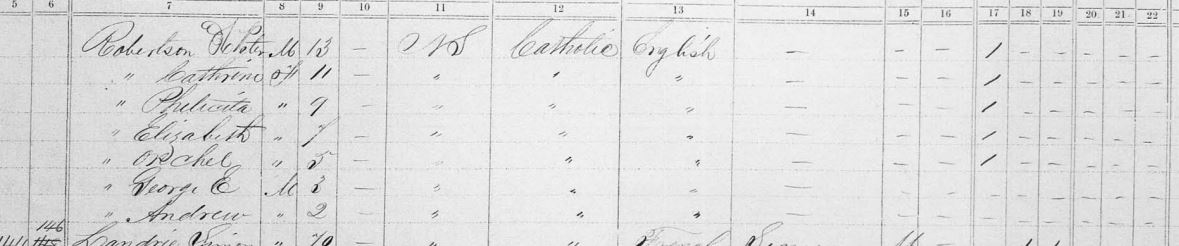 5 6 7 8 9 10 11 12 13 14 15 16 17 18 19 20 21 22
Robertson M 13 — NS Catholic English — — — 1 — — — — —
" Cathrine F 11 — " " " — — — 1 — — — — —
" Phelicita " 9 — " " " — — — 1 — — — — —
" Elizabeth " 7 — " " " — — — 1 — — — — —
" Rachel " 5 — " " " — — — 1 — — — — —
" George E M 3 — " " " — — — — — — — — —
" Andrew " 2 — " " " — — — — — — — — —
146
Landrie " 70 — " " French M —